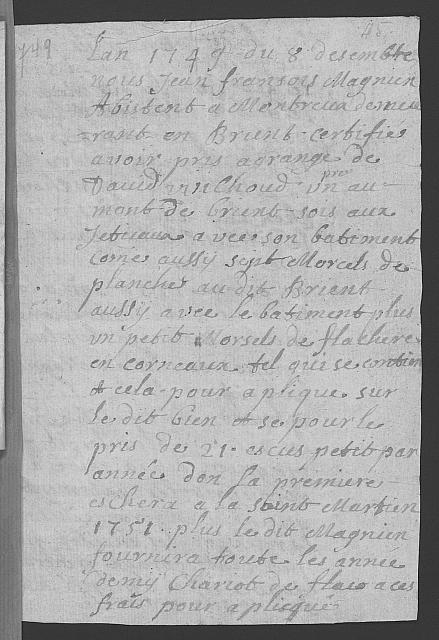 45.
1749 Lan 1749 du 8 desembre
nous Jean fransois Magnien
Abistent a Montreux demeu
rant en Brient certifie
avoir pris agrange de
David Vuichoud vn pre au
mont de brient sois aux
Jetiaux avec son batiment
come aussy sept Morcels de
planche au dit Brient
aussy avec le batiment plus
vn petit Morsels de flachere
en corneaux tel qui se contien
et cela pour aplique sur
le dit bien et se pour le
pris de 21 escus petit par
année don la premiere
eschera a la saint Martien
1751 plus le dit Magnien
fournira toute les année
demy Chariot de flair a ces
frais pour aplique